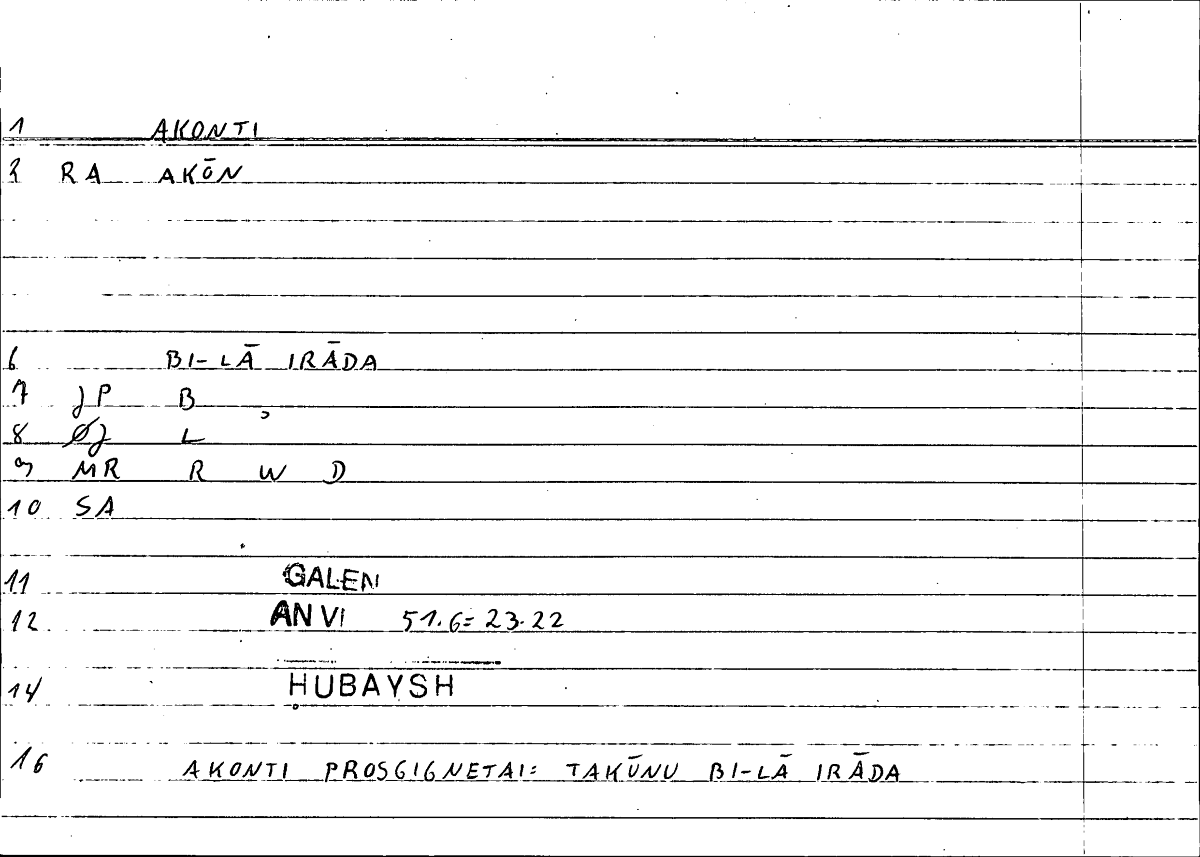 1 AKONTI
2 RA AKŌN
6 BI-LĀ IRĀDA
7 JP B ʾ
8 ØJ L
9 MR R W D
10 SA
11 GALEN
12 AN VI 51.6= 23.22
14 ḤUBAYSH
16 AKONTI PROSGIGNETAI: TAKŪNU BI-LĀ IRĀDA